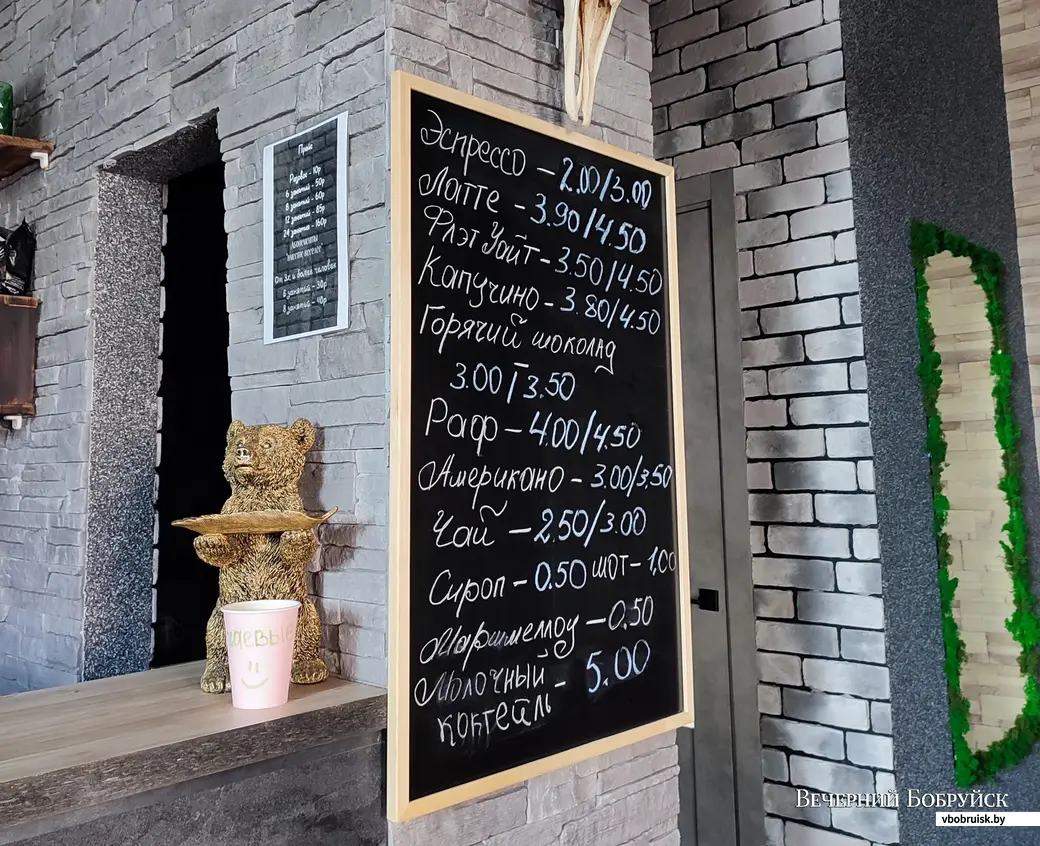 Прайс
Разовое - 10р
6 занятий - 50р
8 занятий - 60р
12 занятий - 85р
24 занятий - 160р
Абонементы
От 3х и более человек
6 занятий - 30р
8 занятий - 40р
Эспрессо - 2.00/3.00
Латте - 3.90/4.50
Флэт Уайт - 3.50/4.50
Капучино - 3.80/4.50
Горячий шоколад
3.00/3.50
Раф - 4.00/4.50
Американо - 3.00/3.50
Чай - 2.50/3.00
Сироп - 0.50 шот - 1,00
Маршмеллоу - 0,50
Молочный - 5.00
коктейль
Вечерний Бобруйск
vbobruisk.by